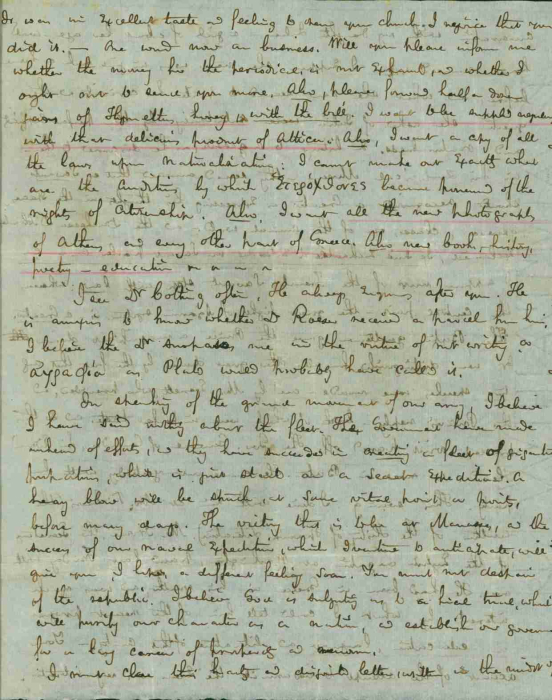 was in excellent taste and feeling to open your church. I rejoice that you
did it. — One word now on business. Will you please inform me
whether the money for the periodicals is not exhausted, or whether I
ought not to send you more. Also, please send half a dozen
of Hymettus honey with the bill. I want to be supplied
with that delicious product of Attica. Also, I want a copy of all
the laws upon naturalization. I cannot make out exactly what
are the conditions by which Ἑτερόχθονες become possessed of the
rights of citizenship. Also, I want all the new photographs
of Athens, and every other part of Greece. Also new books, history,
poetry — education
I see Dr often. He always enquires after you. He
is anxious to know whether received a parcel from him.
I believe the Dr surpasses me in the virtue of not writing
as Plato would probably have called it.
In speaking of the grand of our army, I believe
I have said nothing about the fleet. The have made
of effort, and they have succeeded in creating a fleet of gigantic
which is just started on a secret expedition. A
heavy blow will be struck, at some vital point or points,
before many days. The victory this is to be at or the
success of our naval expedition, which I venture to anticipate, will
give you I hope a different feeling soon. You must not despair
of the republic. I believe God is subjecting us to a trial, which
will purify our character as a nation, and establish our government
for a long career of prosperity and
I must close this hasty and disjointed letter, in the midst